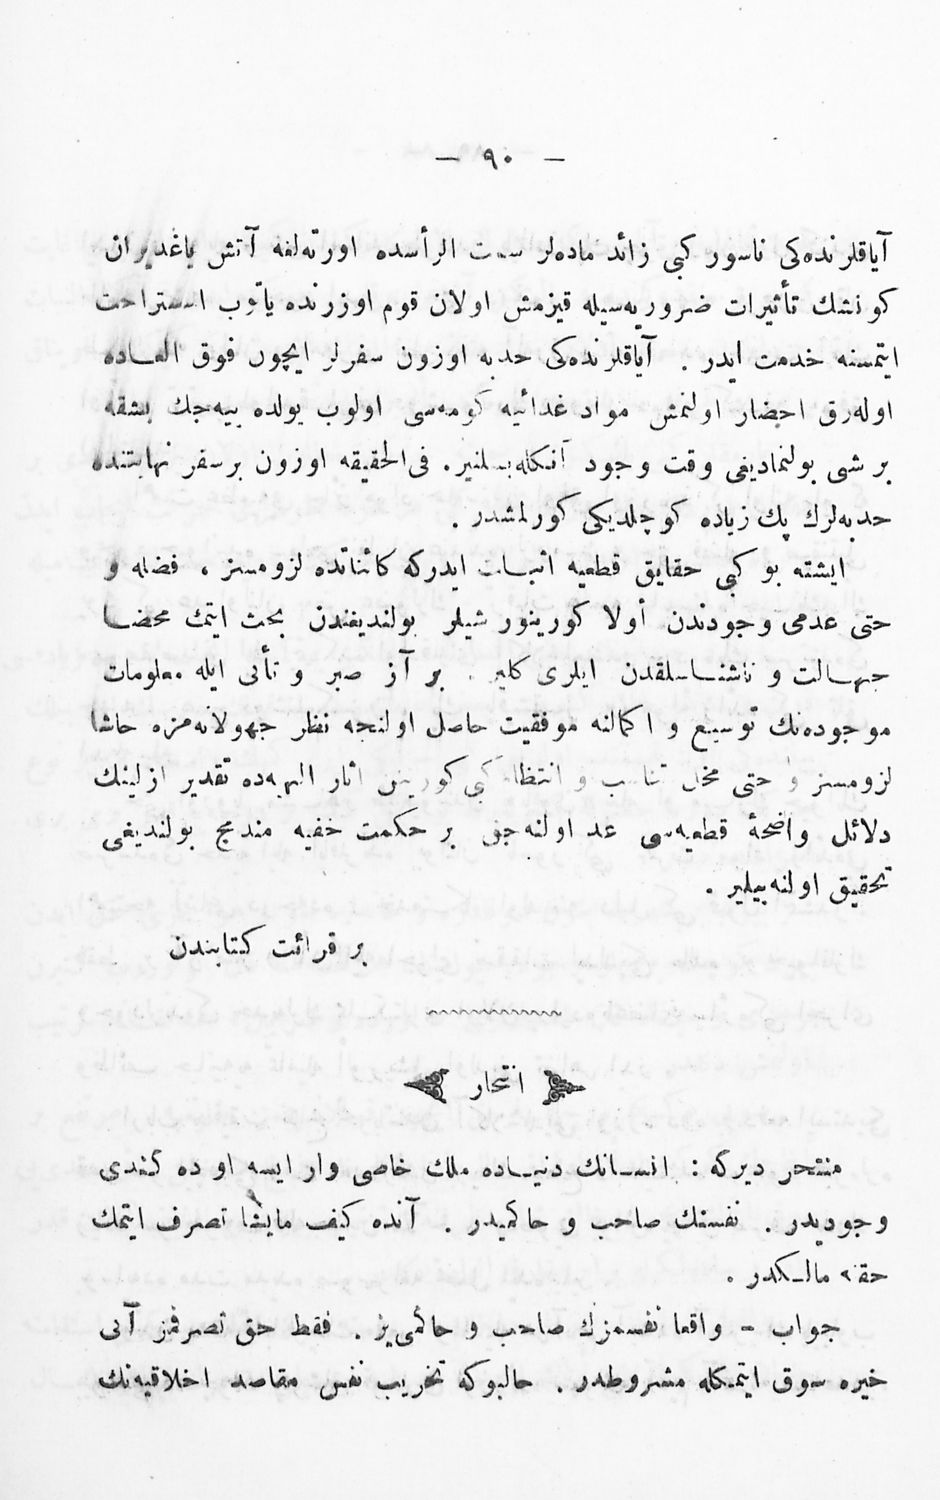 — ٩٠ —
آیاقلرنده‌کی ناسور کبی زائد ماده‌لر سمت الرأسده اورته‌لغه آتش یاغدیران
کونشك تأثیرات ضروریه‌سیله قیزمش اولان قوم اوزرنده یاتوب استراحت
ایتمسنه خدمت ایدر . آیاقلرنده‌کی حدبه اوزون سفرلر ایچون فوق العـاده
اوله‌رق احضار اولنمش مواد غدائیه کومه‌سی اولوب یولده ییه‌جك بشقه
بر شی بولنمادیغی وقت وجود آنکله بسلنیر . فی‌الحقیقه اوزون بر سفر نهایتنده
حدبه‌لرك پك زیاده کوچلدیکی کورلمشدر .
ایشته بو کبی حقایق قطعیه اثبـات ایدرکه کائناتده لزومسز ، فضله و
حتی عدمی وجودندن أولا کورینور شیلر بولندیغندن بحث ایتمك محضـا
جهـالت و ناشنـاسلقدن ایلری کلیر . بر آز صبر و تأنی ایله معلومات
موجوده‌نك توسیع و اکمالنه موفقیت حاصل اولنجه نظر جهولانه‌مزه حاشا
لزومسز و حتی مخل تناسب و انتظام کبی کورینن آثار الهیه‌ده تقدیر ازلینك
دلائل واضحهٔ قطعیه‌سی عد اولنه‌جق بر حکمت خفیه مندمج بولندیغی
تحقیق اولنه‌بیلیر .
بر قرائت کتابندن
انتحار
منتحر دیرکه : انسـانك دنیـاده ملك خاصی وار ایسه او ده کندی
وجودیدر . نفسنك صاحب و حاکمیدر . آنده کیف مایشا تصرف ایتمك
حقنه مالـکدر .
جواب – واقعا نفسمزك صاحب و حاکمی‌یز . فقط حق تصرفمز آنی
خیره سوق ایتمکله مشروطدر . حالبوکه تخریب نفس مقاصد اخلاقیه‌نك